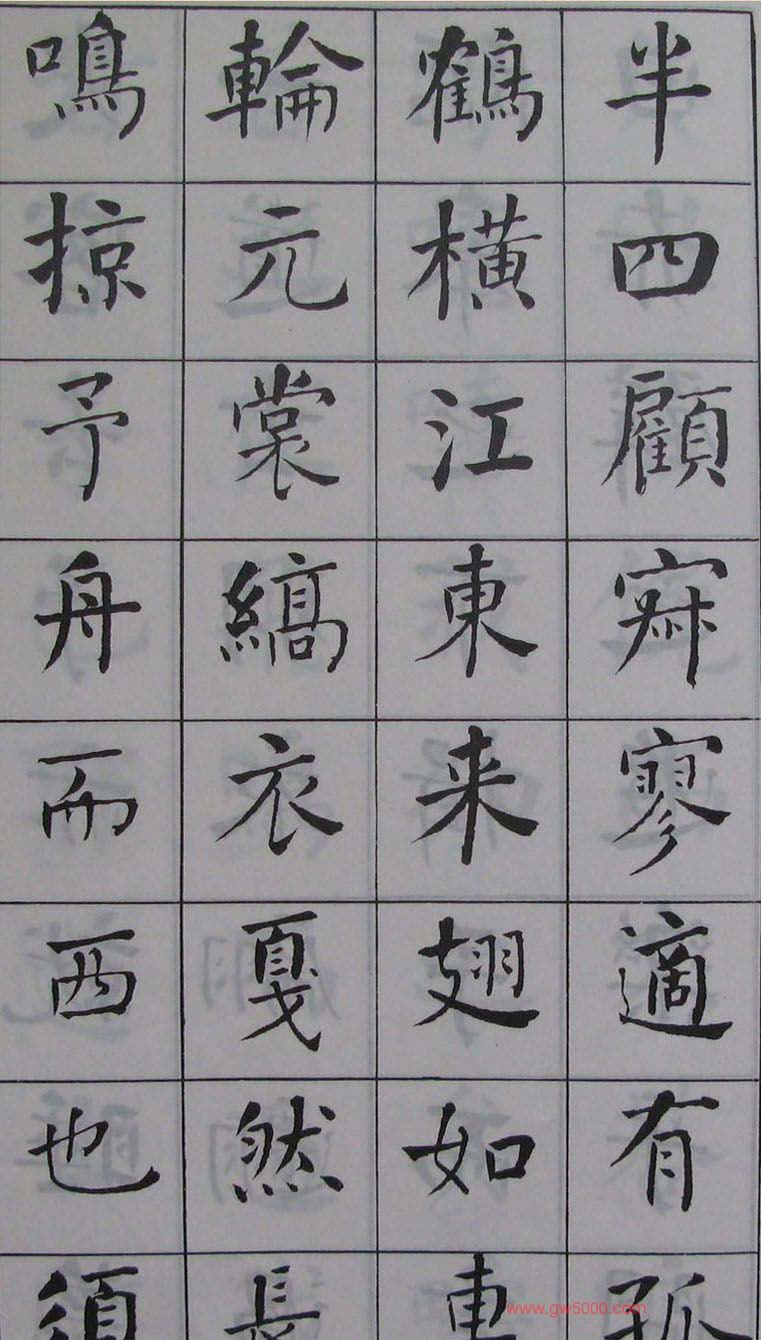 半四顧寂寥適有孤
鶴橫江東来翅如車
輪元裳縞衣戛然長
鳴掠予舟而西也須
www.gw5000.com